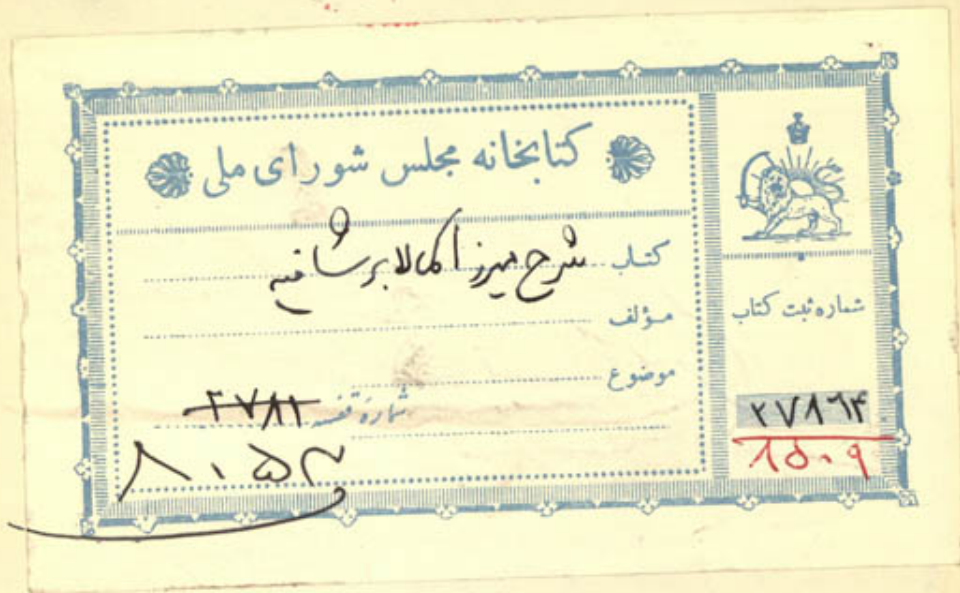 کتابخانه مجلس شورای ملی
کتاب شرح میرزا کمالا بر شافیه
مؤلف
موضوع
شماره قفسه ۲۷۸۲
۸۰۵۴
شماره ثبت کتاب
۲۷۸۶۴
۸۵۰۹